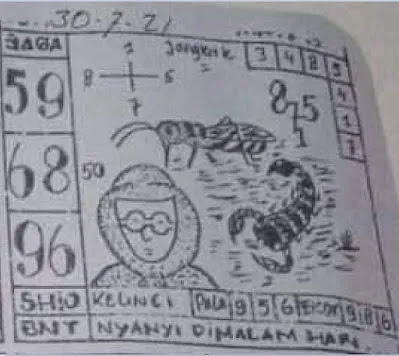 30.7.21
JAGA
59
68
96
1
8 5
7
Jangkrik
=
3 4 8 9
4
1
7
875
1
50
SHIO KELINCI Pola 9 5 6 Ekor 9 8 6
BNT NYANYI DIMALAM HARI